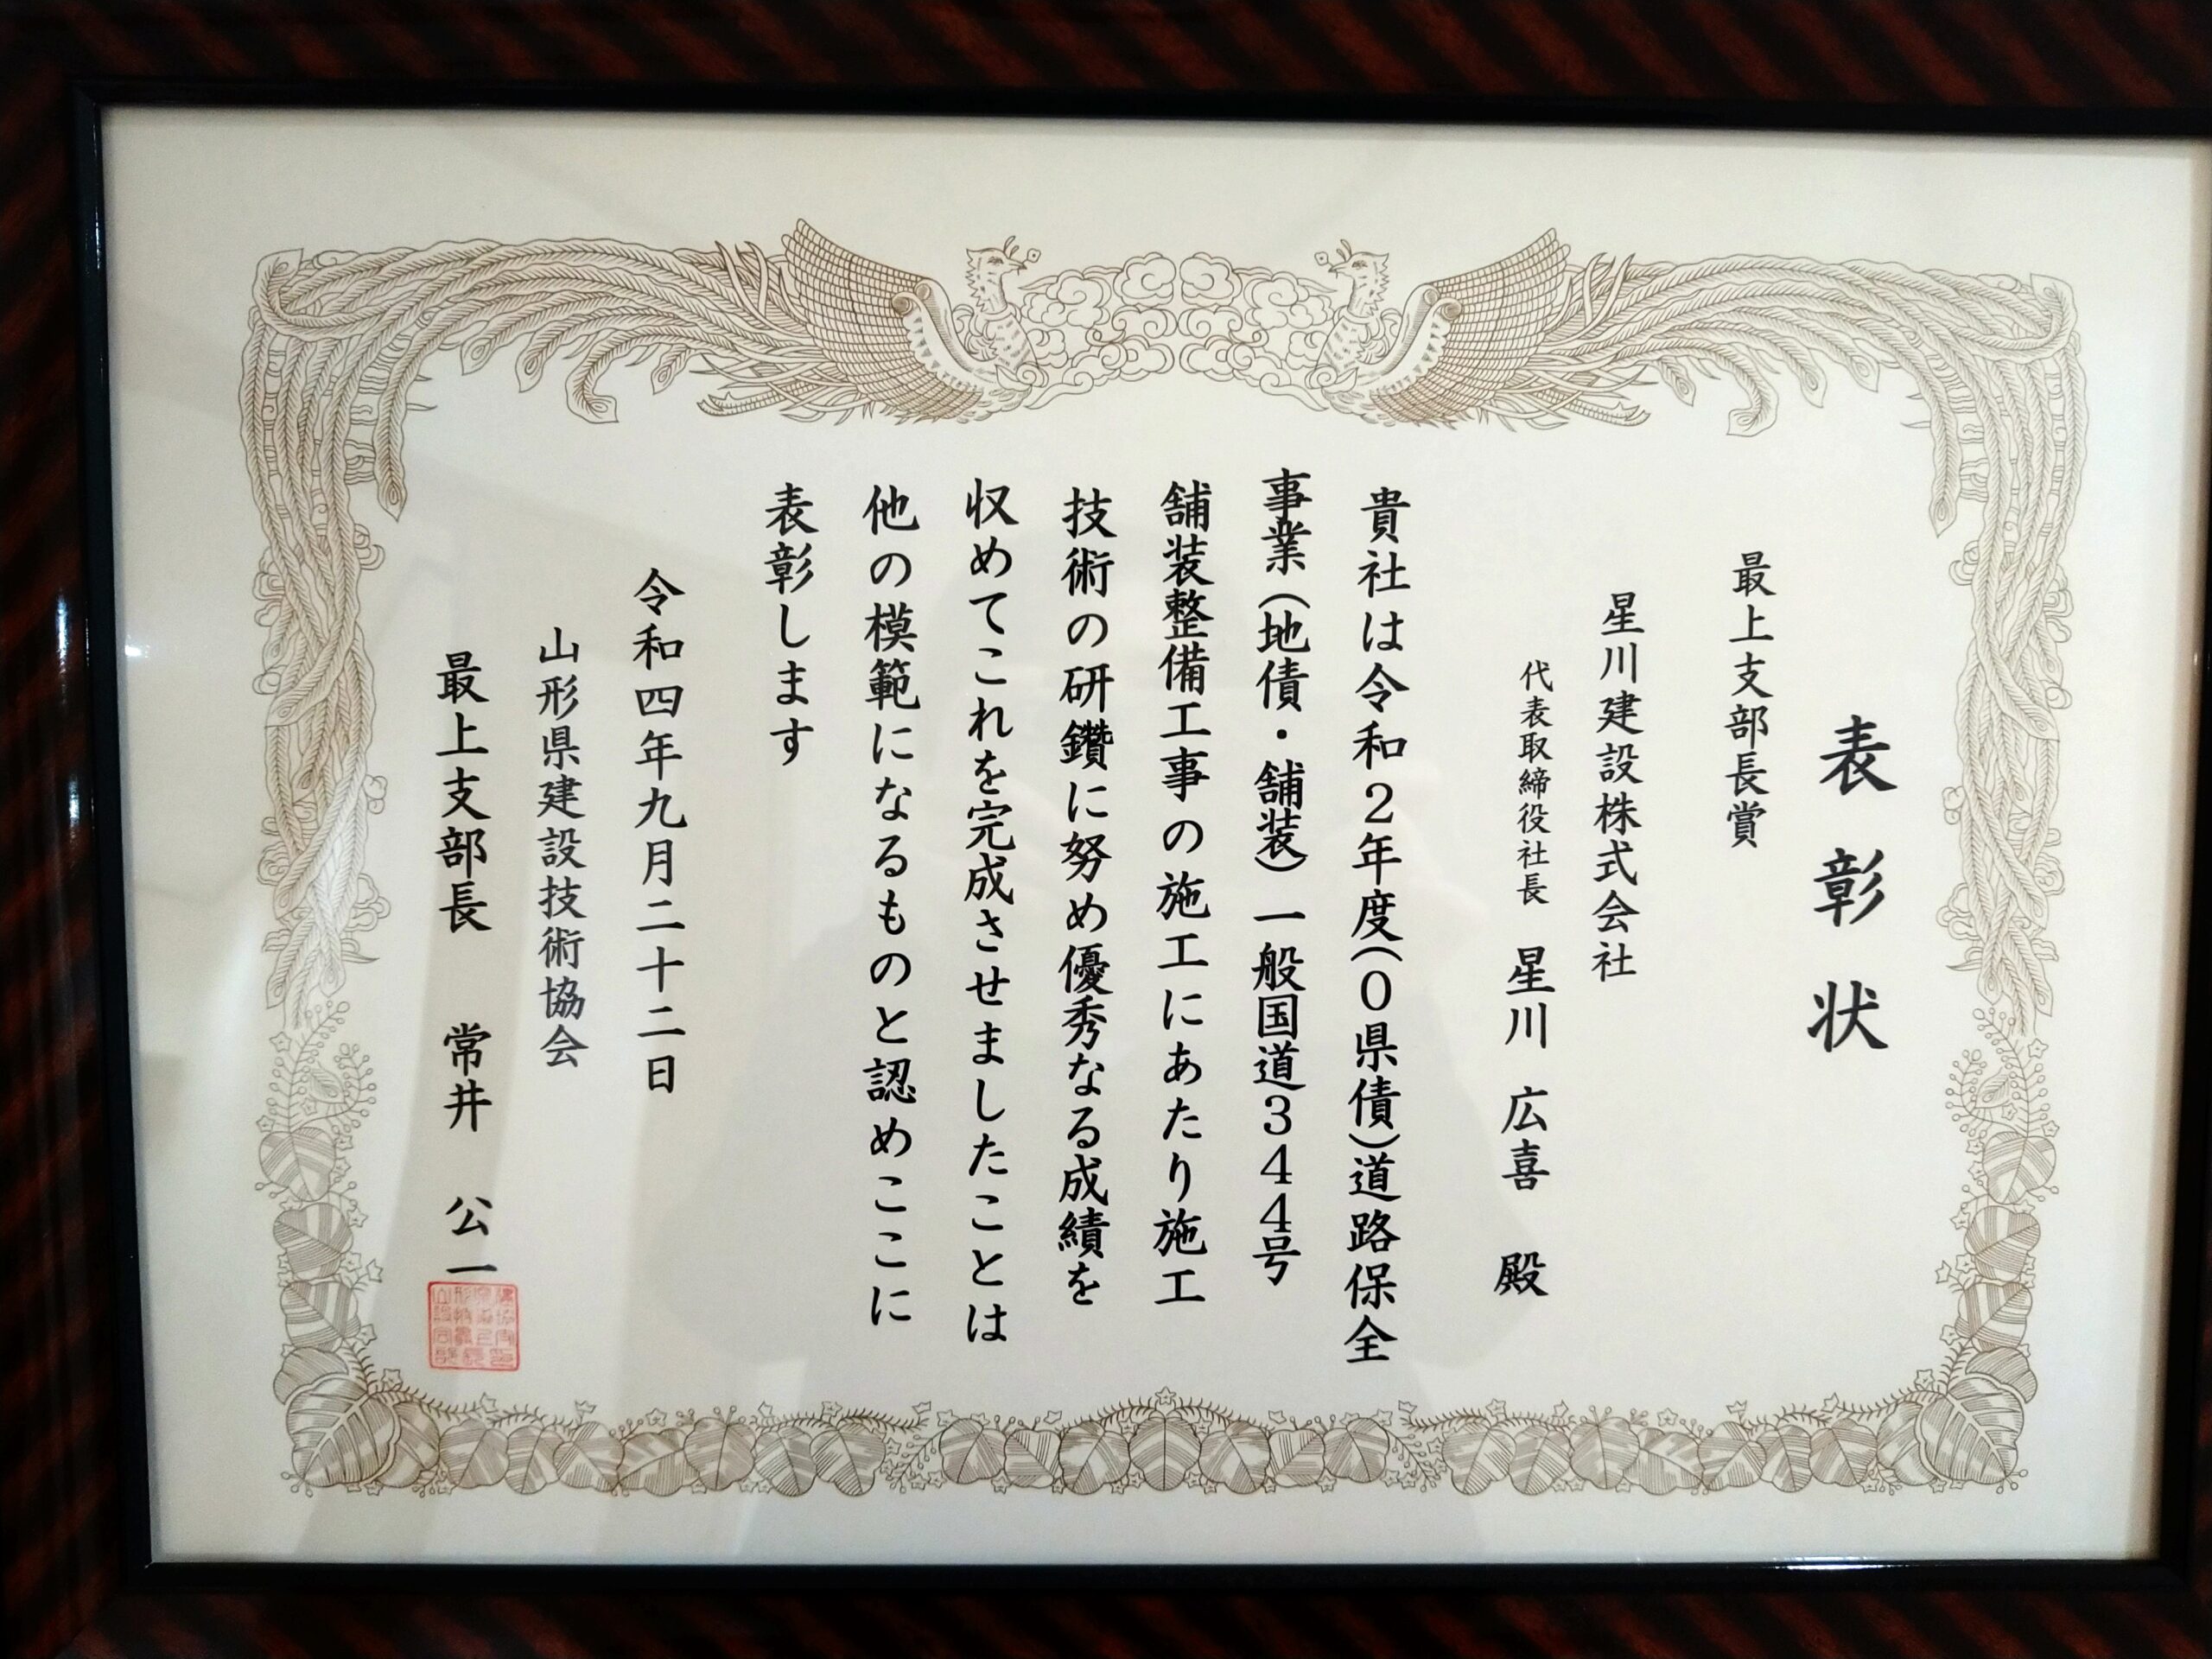 表彰状
最上支部長賞
星川建設株式会社
代表取締役社長 星川 広喜 殿
貴社は令和２年度(０県債)道路保全
事業(地債・舗装)一般国道３４４号
舗装整備工事の施工にあたり施工
技術の研鑽に努め優秀なる成績を
収めてこれを完成させましたことは
他の模範になるものと認めここに
表彰します
令和四年九月二十二日
山形県建設技術協会
最上支部長 常井 公一